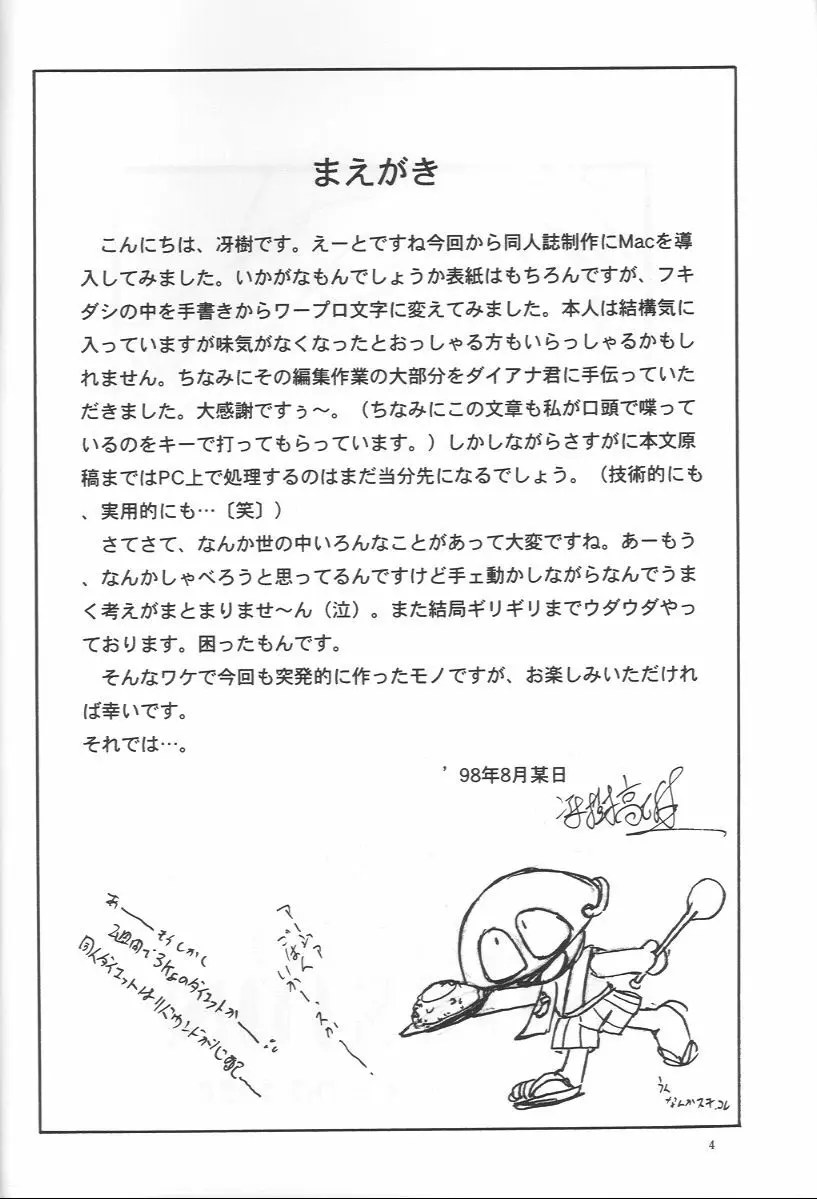 まえがき
こんにちは、冴樹です。えーとですね今回から同人誌制作にMacを導
入してみました。いかがなもんでしょうか表紙はもちろんですが、フキ
ダシの中を手書きからワープロ文字に変えてみました。本人は結構気に
入っていますが味気がなくなったとおっしゃる方もいらっしゃるかもし
れません。ちなみにその編集作業の大部分をダイアナ君に手伝っていた
だきました。大感謝ですぅ〜。（ちなみにこの文章も私が口頭で喋って
いるのをキーで打ってもらっています。）しかしながらさすがに本文原
稿まではPC上で処理するのはまだ当分先になるでしょう。（技術的にも
、実用的にも…〔笑〕）
さてさて、なんか世の中いろんなことがあって大変ですね。あーもう
、なんかしゃべろうと思ってるんですけど手ェ動かしながらなんでうま
く考えがまとまりませ〜ん（泣）。また結局ギリギリまでウダウダやっ
ております。困ったもんです。
そんなワケで今回も突発的に作ったモノですが、お楽しみいただけれ
ば幸いです。
それでは…。
’98年8月某日
冴樹高雄
あーーもくしかし
2週間で3kgのダイエットかーー…
同人ダイエットはリバウンドが
ごはんいかーすかー
うん
なんかスキ.コレ
4